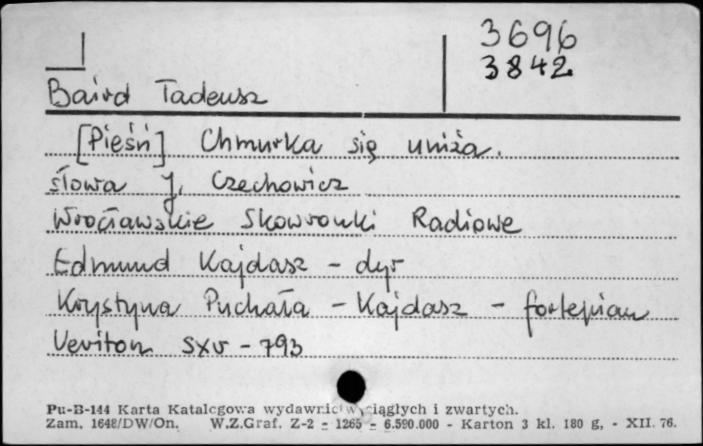 3696
3842
Baird Tadeusz
[Pieśń] Chmurka się uniża.
słowa J. Czechowicz
Wrocławskie Skowronki Radiowe
Edmund Kajdasz - dyr
Krystyna Puchała - Kajdasz - fortepian
Veriton SXV - 793
Pu-B-144 Karta Katalogowa wydawnictw ciągłych i zwartych.
Zam. 1648/DW/On. W.Z.Graf. Z-2 z 1265 - 6.590.000 - Karton 3 kl. 180 g, - XII. 76.